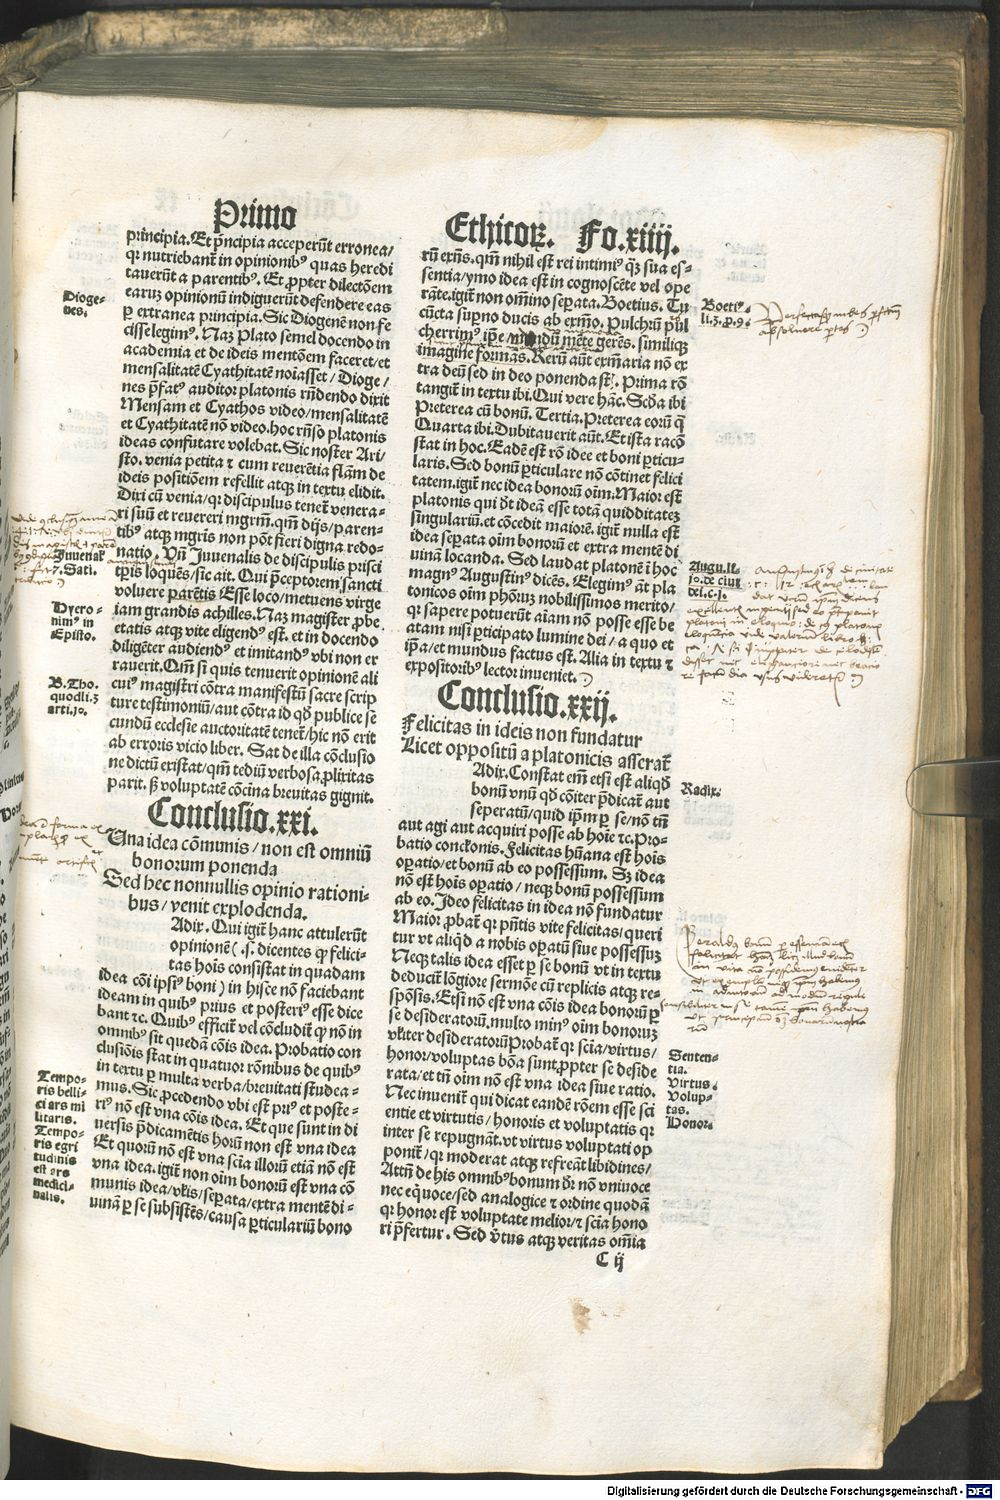 Primo
principia. Et pncipia acceperut erronea/
qr nutriebant in opinionib⁹ quas heredi
tauerut a parentib⁹. Et ꝓpter dilectoem
earuz opinionu indiguerut defendere eas
ꝑ extranea principia. Sic Diogene non fe
cisse legim⁹. Naz Plato semel docendo in
academia et de ideis mentoem faceret/et
mensalitate Cyathitate noiasset/Dioge/
nes pfat⁹ auditor platonis rndendo dixit
Mensam et Cyathos video/mensalitate
et Cyathitate no video. hoc rnso platonis
ideas confutare volebat. Sic noster Ari/
sto. venia petita ⁊ cum reueretia flam de
ideis positioem refellit atqꝫ in textu elidit.
Dixi cu venia/qr discipulus tenet venera-
ri suu et reuereri mgrm. qm dijs/paren-
tib⁹ atqꝫ mgris non pot fieri digna redo-
natio. Vn Juuenalis de discipulis prisci
tpis loques/sic ait. Qui pceptorem sancti
voluere paretis Esse loco/metuens virge
iam grandis achilles. Naz magister ꝓbe
etatis atqꝫ vite eligend⁹ est. et in docendo
diligeter audiend⁹ et imitand⁹ vbi non er
rauerit. Qm si quis tenuerit opinione ali
cui⁹ magistri cotra manifestu sacre scrip
ture testimoniu/aut cotra id qd publice se
cundu ecclesie auctoritate tenet/hic no erit
ab erroris vicio liber. Sat de illa coclusio
ne dictu existat/qm tediu verbosa ꝓlixitas
parit. ß voluptate cocina breuitas gignit.
Conclusio.xxi.
Una idea comunis/non est omniu
bonorum ponenda
Sed hec nonnullis opinio rationi-
bus/venit explodenda.
Adix. Qui igit hanc attulerut
opinione (.s. dicentes ꝙ felici-
tas hois consistat in quadam
idea coi ipsi⁹ boni) in hisce no faciebant
ideam in quib⁹ prius et posteri⁹ esse dice
bant ⁊c. Quib⁹ efficit vel cocludit qr no in
omnib⁹ sit quedam cois idea. Probatio con
clusiois stat in quatuor ronibus de quib⁹
in tertu ꝑ multa verba/breuitati studea-
mus. Sic ꝓcedendo vbi est pri⁹ et poste-
ri⁹ no est vna cois idea. Et que sunt in di
uersis pdicametis horu non est vna idea
Et quoru no est vna scia illoru etia no est
vna idea. igit non oim bonoru est vna co
munis idea/vlis/sepata/extra mente di-
uina ꝑ se subsistes/causa ꝑticulariu bono
Dioge-
nes.
Juuenal
7. Sati.
Hyero-
nim⁹ in
Episto.
B. Tho.
quodli.3
arti.10.
Tempo-
ris belli-
ci ars mi
litaris.
Tempo-
ris egri
tudinis
est ars
medici-
nalis.
Ethicoꝝ. Fo.xiiij.
ru exns. qm nihil est rei intimi⁹ qꝫ sua es-
sentia/ymo idea est in cognoscete vel ope
rate. igit non omino sepata. Boetius. Tu
cuncta supno ducis ab exmo. Pulchru pul
cherrim⁹ ipe/mundu mete geres. similiqꝫ
imagine formas. Reru aut exmaria no ex
tra deu sed in deo ponenda st. Prima ro
tangit in textu ibi. Qui vere hac. Scda ibi
Preterea cu bonu. Tertia. Preterea eoru q
Quarta ibi. Dubitauerit aut. Et ista raco
stat in hoc. Eade est ro idee et boni ꝑticu-
laris. Sed bonu ꝑticulare no cotinet felici
tatem. igit nec idea bonoru oim. Maior est
platonis qui dt idea esse tota quidditatez
singulariu. et cocedit maiore. igit nulla est
idea sepata oim bonoru et extra mente di
uina locanda. Sed laudat platone i hoc
magn⁹ Augustin⁹ dices. Elegim⁹ at pla
tonicos oim phoruz nobilissimos merito/
qr sapere potuerut aiam no posse esse be
atam nisi ꝑticipato lumine dei/a quo et
ipa/et mundus factus est. Alia in textu ⁊
expositorib⁹ lector inueniet.
Conclusio.xxij.
Felicitas in ideis non fundatur
Licet oppositu a platonicis asserat
Adix. Constat em etsi est aliqd
bonum vnu qd coiter pdicat aut
seperatu/quid ipm ꝑ se/no tn
aut agi aut acquiri posse ab hoie ⁊c. Pro-
batio conckonis. Felicitas huana est hois
oꝑatio/et bonu ab eo possessum. Sꝫ idea
no est hois oꝑatio/neqꝫ bonu possessum
ab eo. Ideo felicitas in idea no fundatur
Maior ꝓbat qr pntis vite felicitas/queri
tur vt aliqd a nobis oꝑatu siue possessuz
Neqꝫ talis idea esset ꝑ se bonu vt in textu
deducit logiore sermoe cu replicis atqꝫ re-
sposis. Etsi no est vna cois idea bonoru ꝑ
se desideratoru. multo min⁹ oim bonoruz
vliter desideratoru Probat qr scia/virtus/
honor/voluptas boa sunt ꝓpter se deside
rata/et tn oim no est vna idea siue ratio.
Nec inuenit qui dicat eande roem esse sci
entie et virtutis/honoris et voluptatis qr
inter se repugnat. vt virtus voluptati op
ponit/qr moderat atqꝫ refreat libidines/
Attn de his omnib⁹ bonum dr no vniuoce
nec equoce/sed analogice ⁊ ordine quoda
qr honor est voluptate melior/⁊ scia hono
ri pfertur. Sed vtus atqꝫ veritas omia
C ij
Boeti⁹
li.3.p.9.
Augu.li.
10.de ciui.
dei.c.1.
Radix.
Senten-
tia.
Virtus.
Volup-
tas.
Honor.
Digitalisierung gefördert durch die Deutsche Forschungsgemeinschaft - DFG